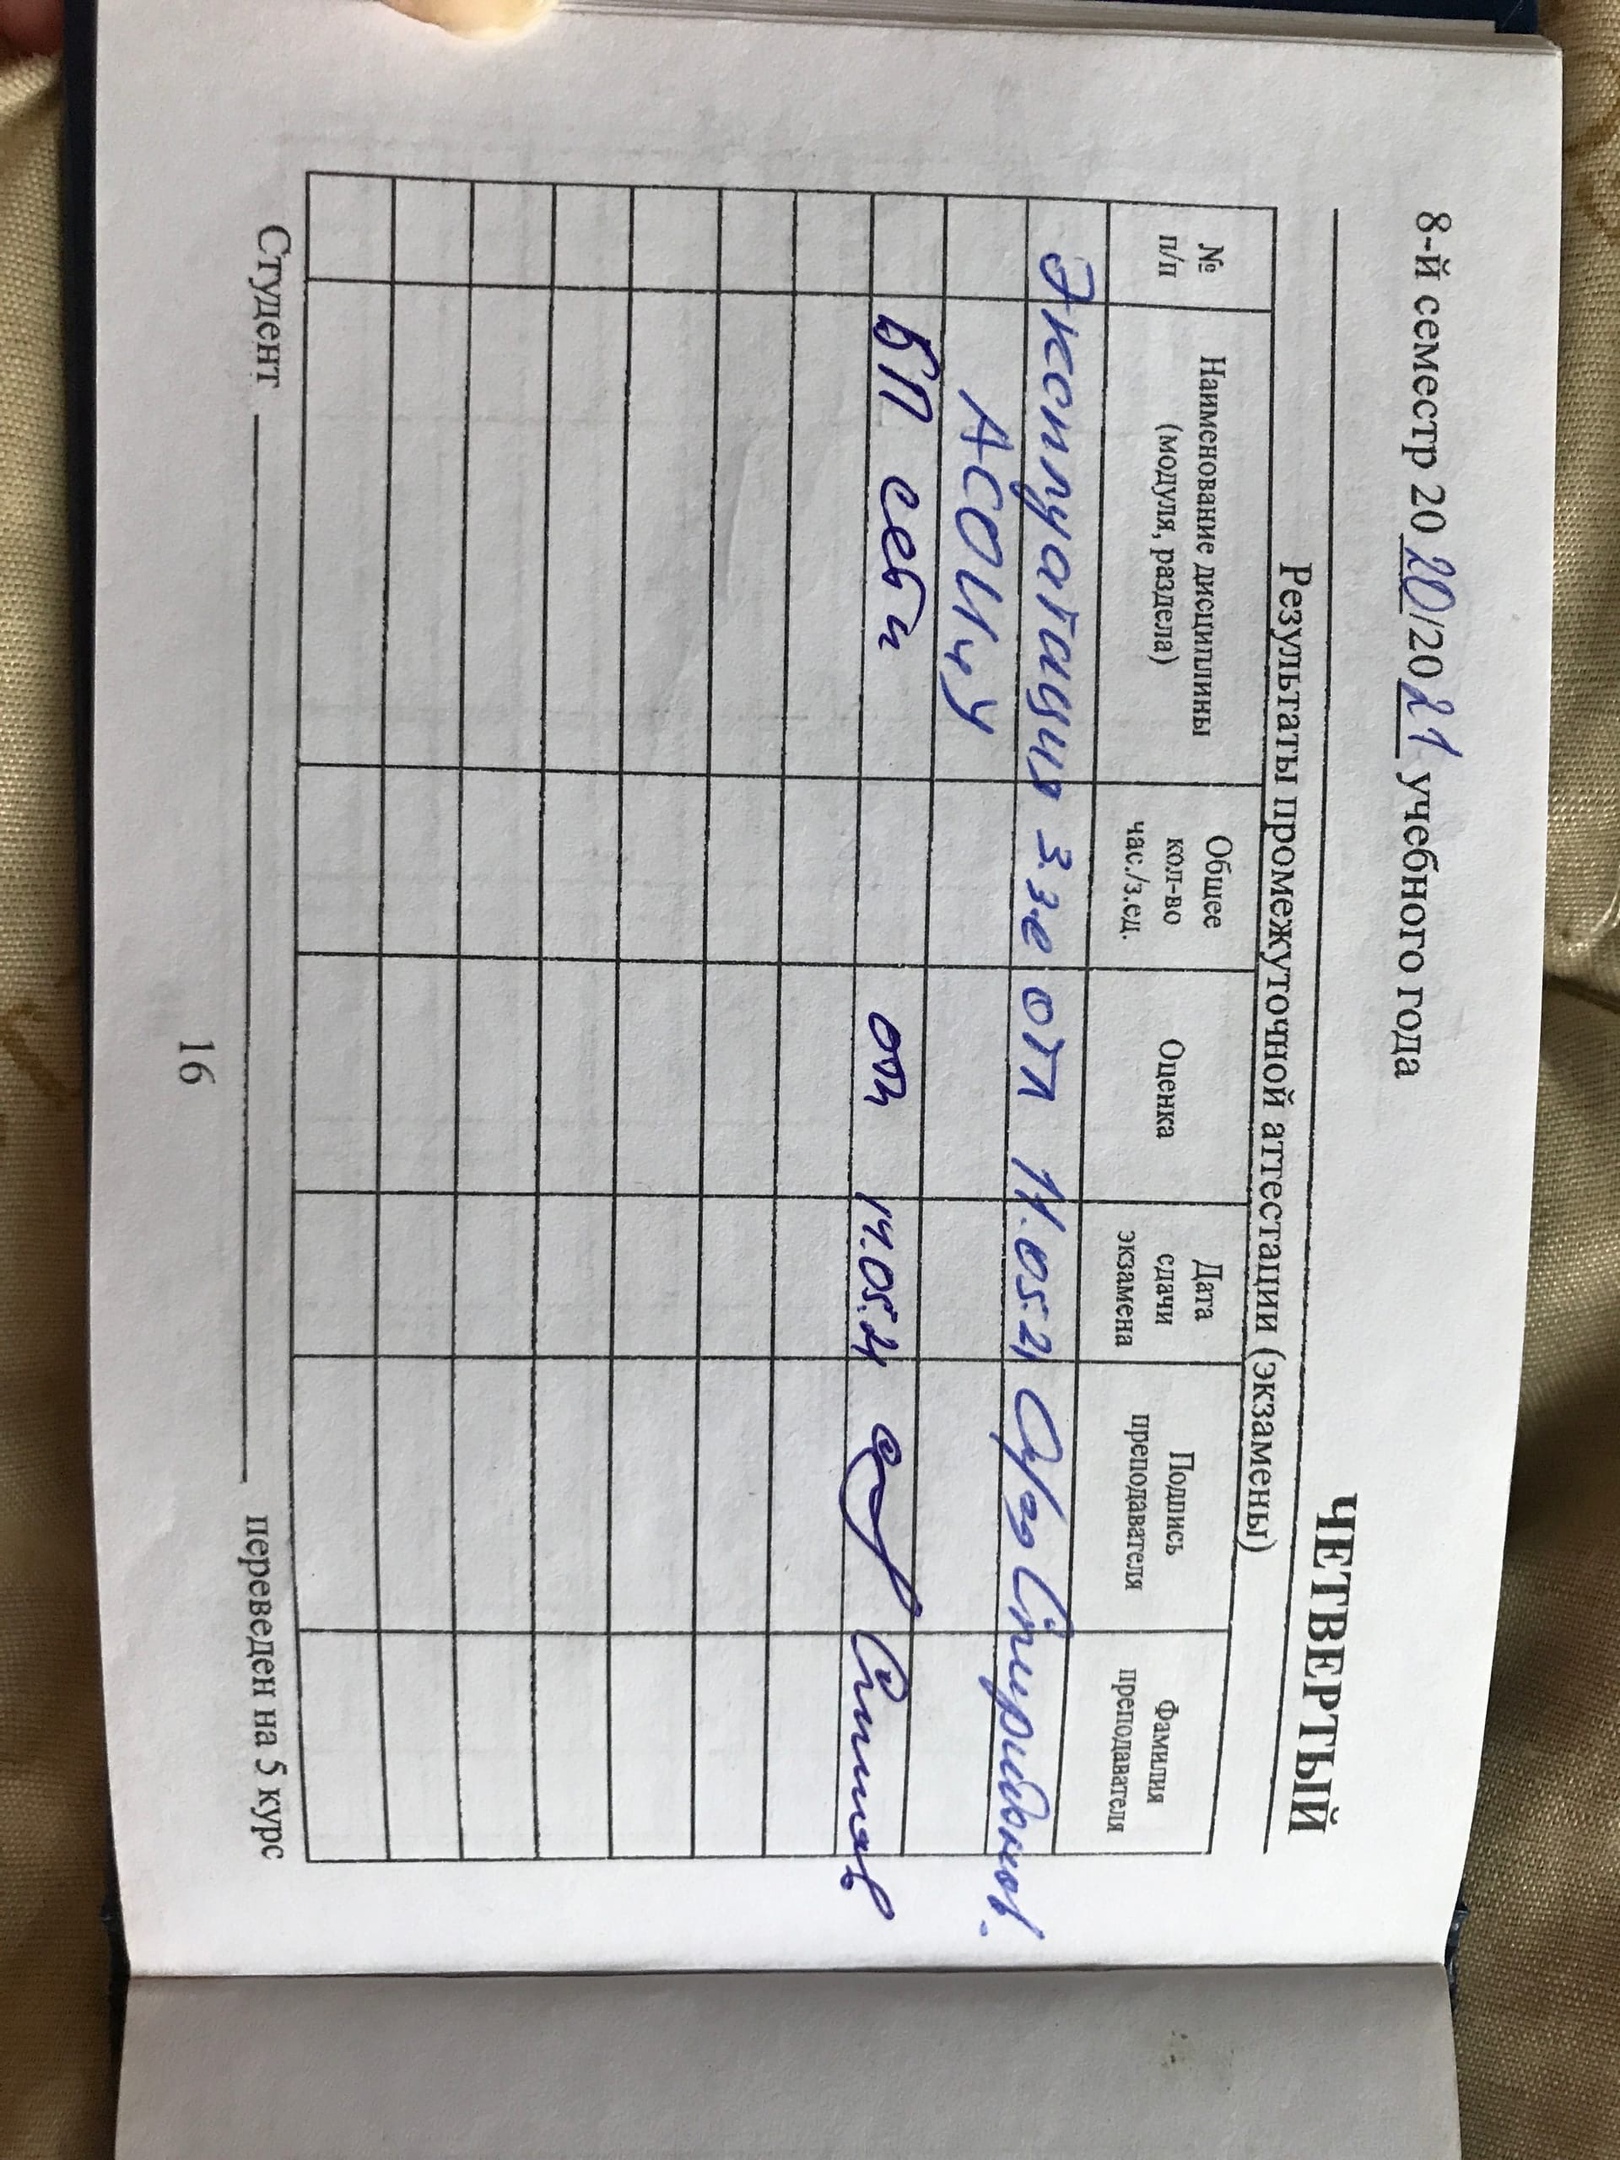 8-й семестр 2020/2021 учебного года
ЧЕТВЕРТЫЙ
Результаты промежуточной аттестации (экзамены)
№ п/п Наименование дисциплины (модуля, раздела) Общее кол-во час./з.ед. Оценка Дата сдачи экзамена Подпись преподавателя Фамилия преподавателя
Эксплуатация 3 з.е отл 11.05.21 Спиридонов.
АСОИиУ
БП отл 14.05.21
Студент переведен на 5 курс
16